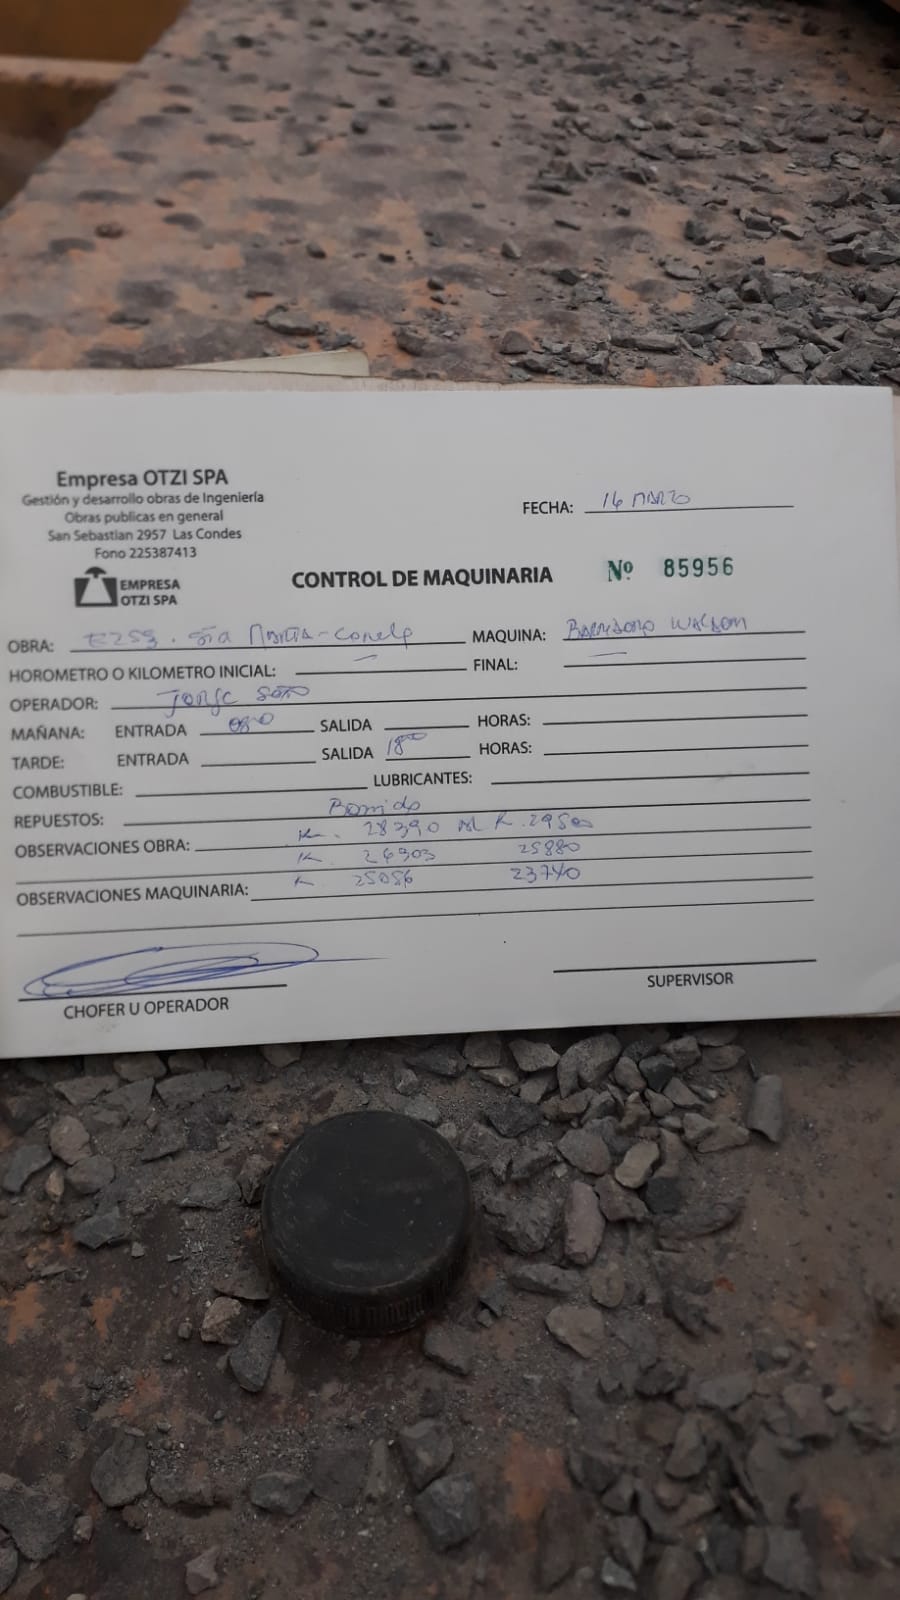 Empresa OTZI SPA
Gestión y desarrollo obras de Ingeniería
Obras publicas en general
San Sebastian 2957 Las Condes
Fono 225387413
EMPRESA
OTZI SPA
FECHA: 16 MARZO
CONTROL DE MAQUINARIA Nº 85956
OBRA: E253. Sta Marta - MAQUINA:
HOROMETRO O KILOMETRO INICIAL: — FINAL: —
OPERADOR: JORGE SOTO
MAÑANA: ENTRADA 0800 SALIDA HORAS:
TARDE: ENTRADA SALIDA 1800 HORAS:
COMBUSTIBLE: LUBRICANTES:
REPUESTOS: Barrido
OBSERVACIONES OBRA: K. 28390 AL K. 29500
K. 24303 25880
OBSERVACIONES MAQUINARIA: K 25056 23740
CHOFER U OPERADOR SUPERVISOR